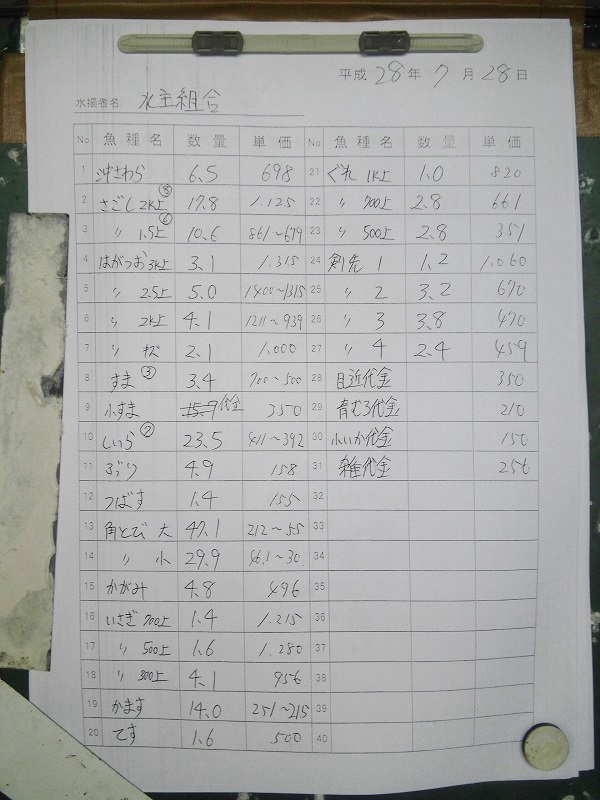 平成 28 年 7 月 28 日
水揚者名 水主組合
No 魚種名 数量 単価 No 魚種名 数量 単価
1 沖さわら 6.5 698 21 ぐれ 1K上 1.0 820
2 さごし 2K上 ⑤ 17.8 1.125 22 〃 700上 2.8 661
3 〃 1.5上 ⑥ 10.6 861~679 23 〃 500上 2.8 351
4 はがつお 3K上 3.1 1.315 24 剣先 1 1.2 1.060
5 〃 2.5上 5.0 1400~1315 25 〃 2 3.2 670
6 〃 2K上 4.1 1211~939 26 〃 3 3.8 470
7 〃 キズ 2.1 1.000 27 〃 4 2.4 459
8 すま ③ 3.4 700~500 28 目近代金 350
9 小すま 15.7 代金 350 29 青むろ代金 210
10 しいら ⑦ 23.5 411~392 30 小いか代金 150
11 ぶり 4.9 158 31 雑代金 256
12 つばす 1.4 155 32
13 角とび 大 47.1 212~55 33
14 〃 小 29.9 46.1~30 34
15 かがみ 4.8 496 35
16 いさぎ 700上 1.4 1.215 36
17 〃 500上 1.6 1.280 37
18 〃 300上 4.1 956 38
19 かます 14.0 251~215 39
20 てす 1.6 500 40